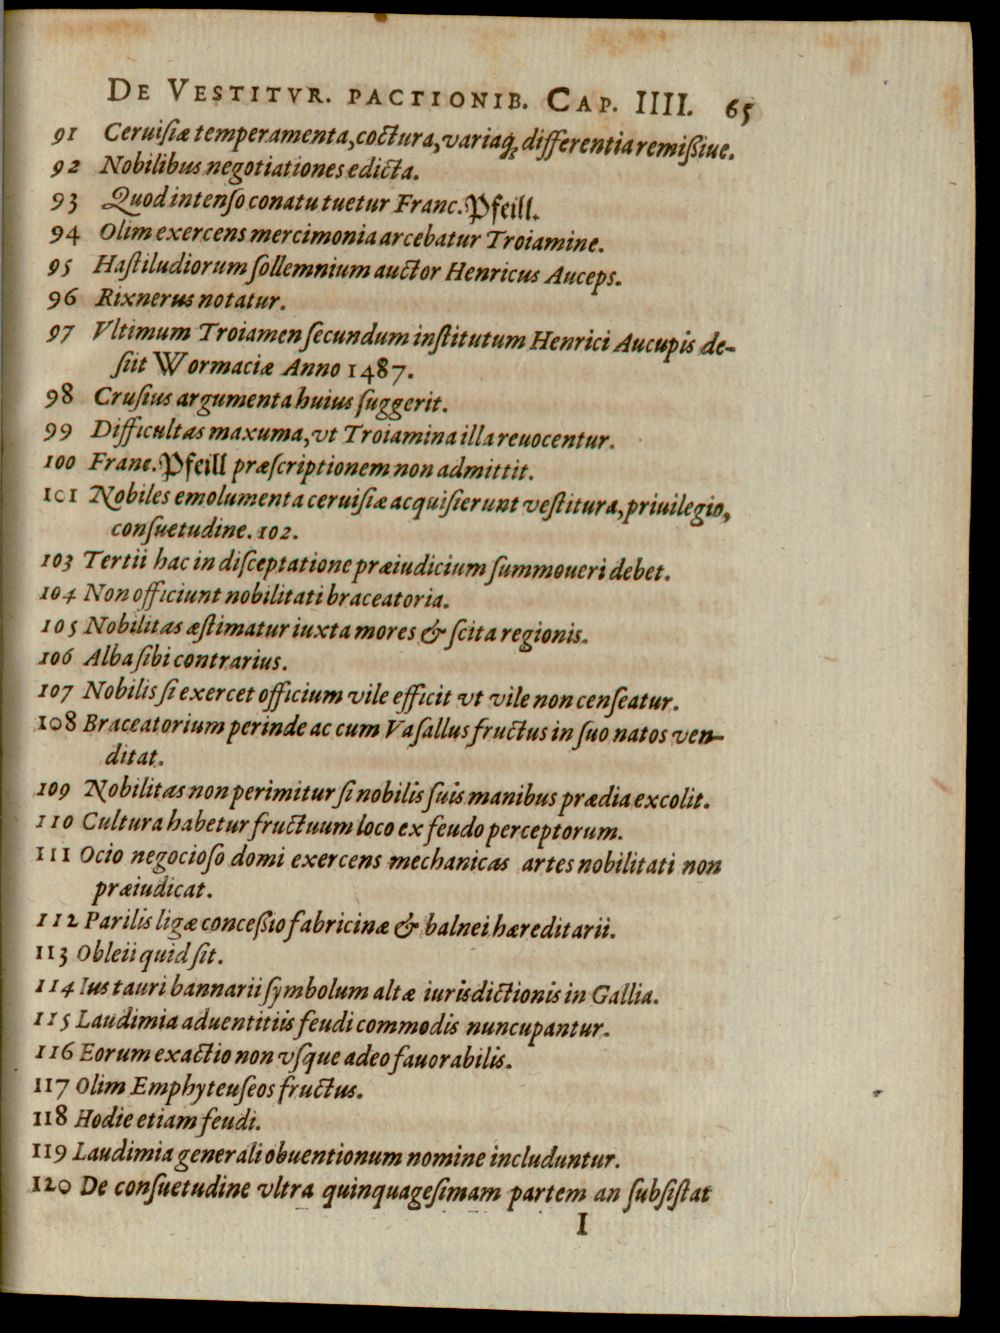 DE VESTITVR. PACTIONIB. CAP. IIII. 65
91 Ceruisiæ temperamenta, coctura, variaq́; differentia remißiue.
92 Nobilibus negotiationes edicta.
93 Quod intenso conatu tuetur Franc. Pfeill.
94 Olim exercens mercimonia arcebatur Troiamine.
95 Hastiludiorum sollemnium auctor Henricus Auceps.
96 Rixnerus notatur.
97 Vltimum Troiamen secundum institutum Henrici Aucupis de-
siit Wormaciæ Anno 1487.
98 Crusius argumenta huius suggerit.
99 Difficultas maxuma, vt Troiamina illa reuocentur.
100 Franc. Pfeill præscriptionem non admittit.
101 Nobiles emolumenta ceruisiæ acquisierunt vestitura, priuilegio,
consuetudine. 102.
103 Tertii hac in disceptatione præiudicium summoueri debet.
104 Non officiunt nobilitati braceatoria.
105 Nobilitas æstimatur iuxta mores & scita regionis.
106 Alba sibi contrarius.
107 Nobilis si exercet officium vile efficit vt vile non censeatur.
108 Braceatorium perinde ac cum Vasallus fructus in suo natos ven-
ditat.
109 Nobilitas non perimitur si nobilis suis manibus prædia excolit.
110 Cultura habetur fructuum loco ex feudo perceptorum.
111 Ocio negocioso domi exercens mechanicas artes nobilitati non
præiudicat.
112 Parilis ligæ conceßio fabricinæ & balnei hæreditarii.
113 Obleii quid sit.
114 Ius tauri bannarii symbolum altæ iurisdictionis in Gallia.
115 Laudimia aduentitiis feudi commodis nuncupantur.
116 Eorum exactio non vsque adeo fauorabilis.
117 Olim Emphyteuseos fructus.
118 Hodie etiam feudi.
119 Laudimia generali obuentionum nomine includuntur.
120 De consuetudine vltra quinquagesimam partem an subsistat
I